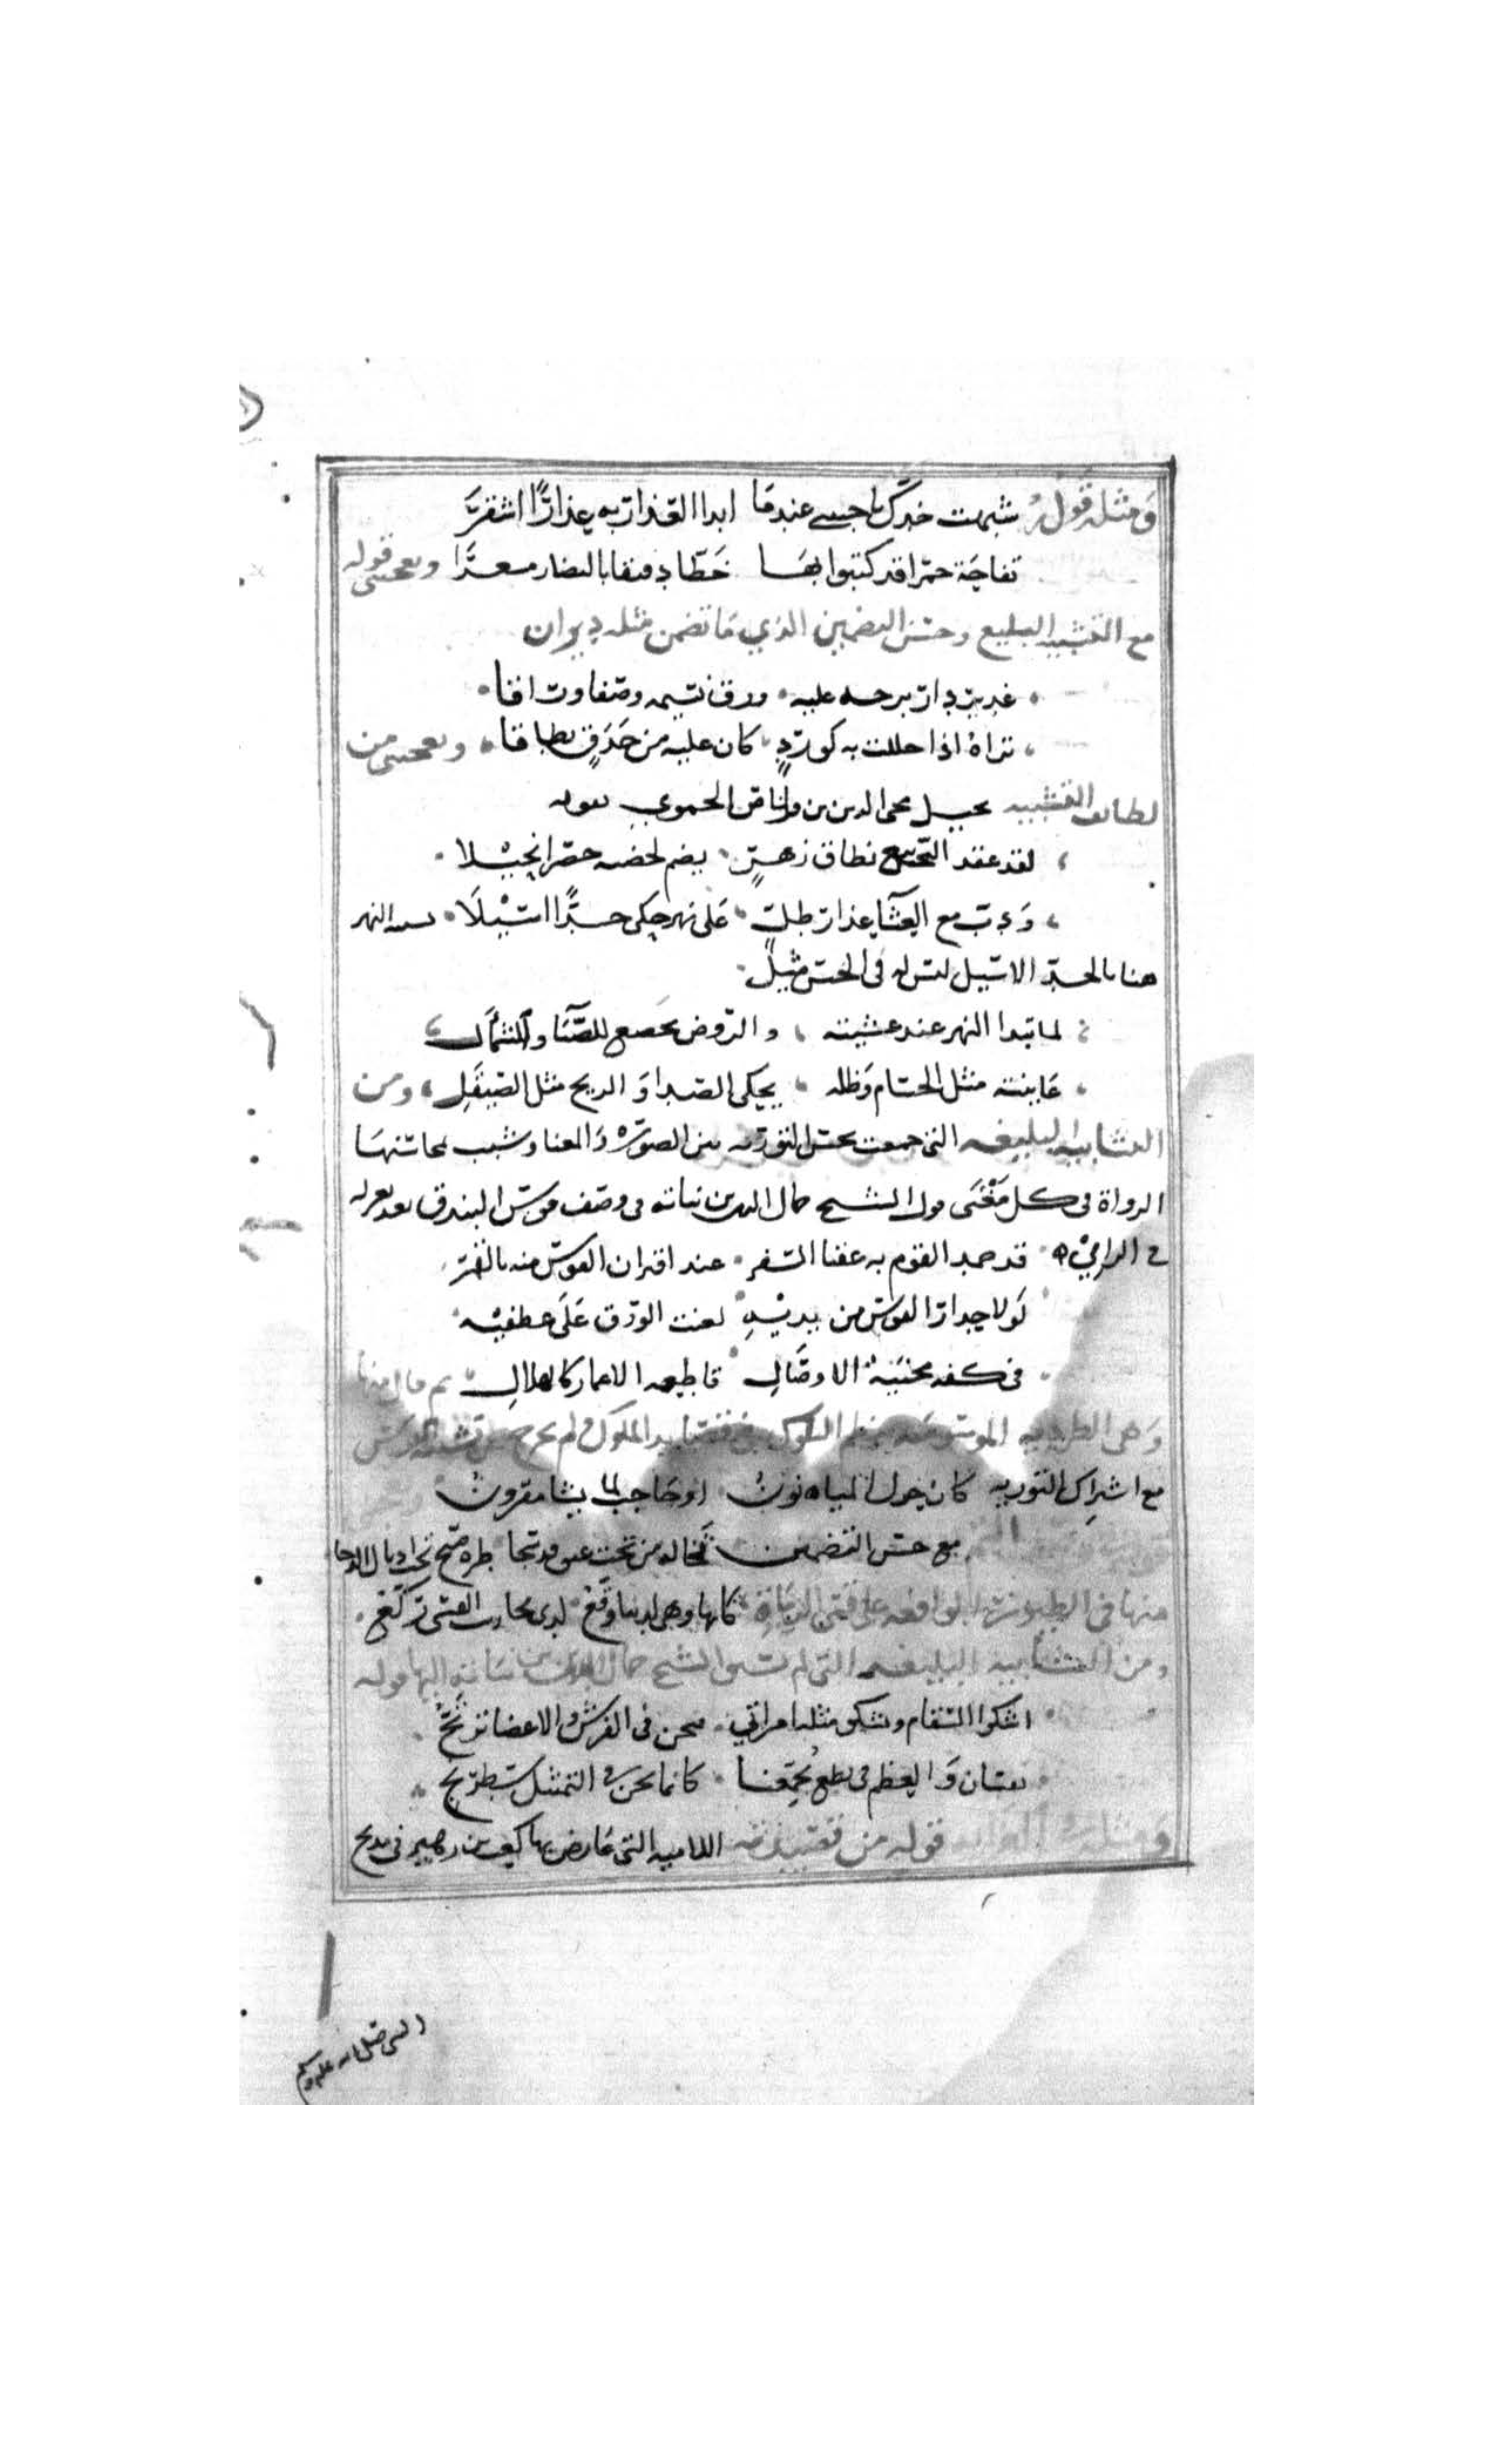 ومثله قوله شبهت خدك يا حبيبي عندما ابدا العذار به عذارًا اشقرًا
تفاحة حمرا قد كتبوا بها خطا دقيقا بالنضار مسعدًا ويعجبني قوله
مع التشبيه البليغ وحسن التضمين الذي ما تضمن مثله ديوان
غدير دار نرجسه عليه ورق نسيمه وصفا وراقا
تراه اذا حللت به كورد كان عليه من حدق نطاقا ويعجبني من
لطائف التشبيه تخيل محي الدين بن قرناص الحموي بقوله
لقد عقد الربيع نطاق زهر يضم لخصره خصرا نحيلا
ودب مع العشايا عذار ظل على نهر حكى خدًا اسيلا نسبة النهر
هنا بالخد الاسيل ليس له في الحسن مثيل
لما تبدا النهر عند عشية والروض يخضع للصبا والشمأل
عاينته مثل الحسام وظله يحكي الصدا والريح مثل الصيقل ومن
التشابيه البليغه التي جمعت بحسن التوريه بين الصورة والمعنا وشبب بمحاسنها
الرواة في كل مغنى قول الشيخ جمال الدين بن نباته في وصف قوس البندق بعد تغزله
في الرامي قد حمد القوم به عقبا السفر عند اقتران القوس منه بالقمر
لولا حذار القوس من يديه لغنت الورق على عطفيه
في كفه محنية الاوصال قاطعه الاعمار كالهلال ثم قال منها
وهي الطرديه الموسومه بنظم السلوك في مصايد الملوك ولم يخرج عن تشبيه القوس
مع اشتراك التوريه كانه حول المياه نون او حاجب لما يشا مقرون
مع حسن التضمين تخاله من تحت عنق قد سجا طرة صبح تحت اذيال الدجا
منها في الطيور الواقعه على قسي الرماة كانها وهي لدينا وقع لدى محاريب القسي تركع
ومن التشابيه البليغه التي لم يسبق الشيخ جمال الدين بن نباته اليها قوله
اشكوا السقام وتشكو مثله امراتي فنحن في الفرش والاعضا ترتج
نفسان والعظم في نطع يجمعنا كانما نحن في التمثيل شطرنج
قوله من قصيدته اللاميه التي عارض بها كعب بن زهير في مديح
النبي صلى الله عليه وسلم